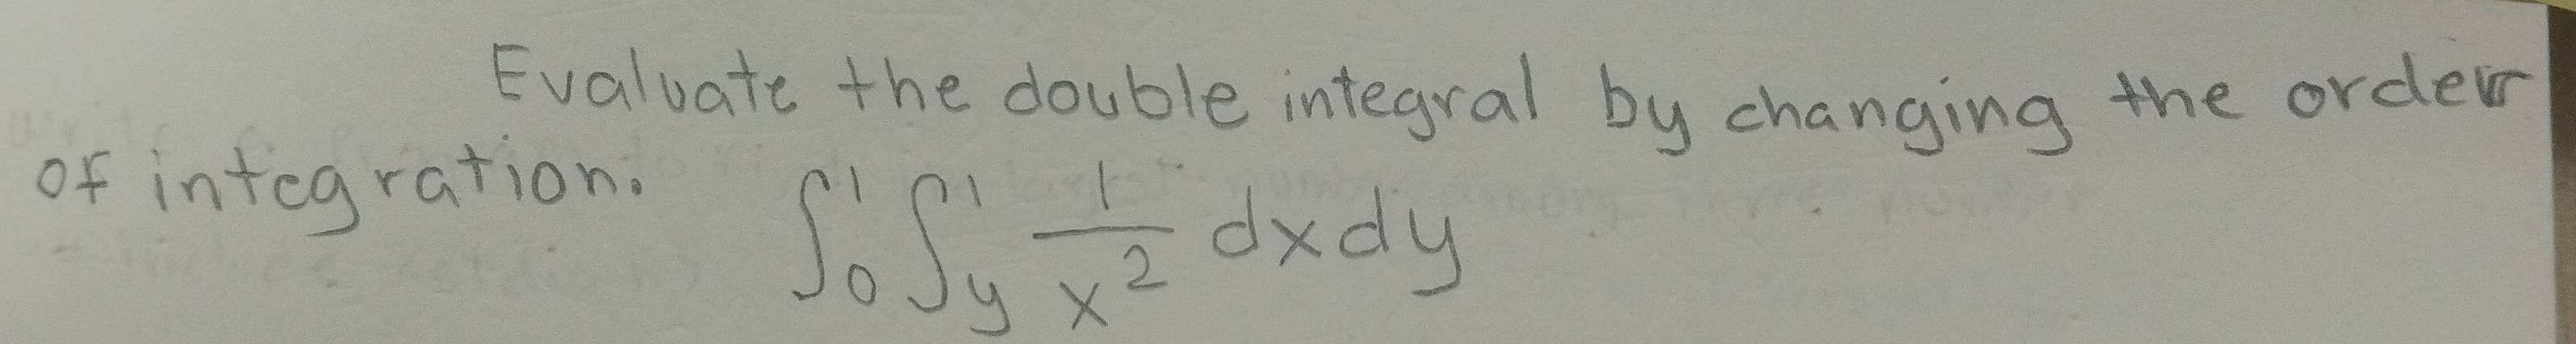 Evaluate the double integral by changing the order
of integration. ∫₀¹ ∫_y¹ 1/x² dxdy